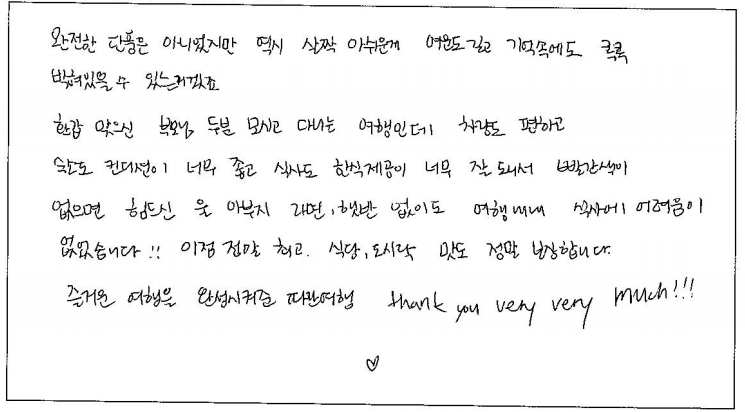 완전한 단풍은 아니었지만 역시 살짝 아쉬운게 여운도 길고 기억속에도 콕콕
박혀있을 수 있는거겠죠
환갑 맞으신 부모님, 두분 모시고 다니는 여행인데 차량도 편하고
숙소도 컨디션이 너무 좋고 식사도 한식제공이 너무 잘 돼서 빨간색이
없으면 힘드신 울 아부지 라면, 햇반 없이도 여행내내 식사에 어려움이
없었습니다!! 이점 정말 최고. 식당, 도시락 맛도 정말 보장합니다.
즐거운 여행을 완성시켜준 따관여행 thank you very very much!!!
♡